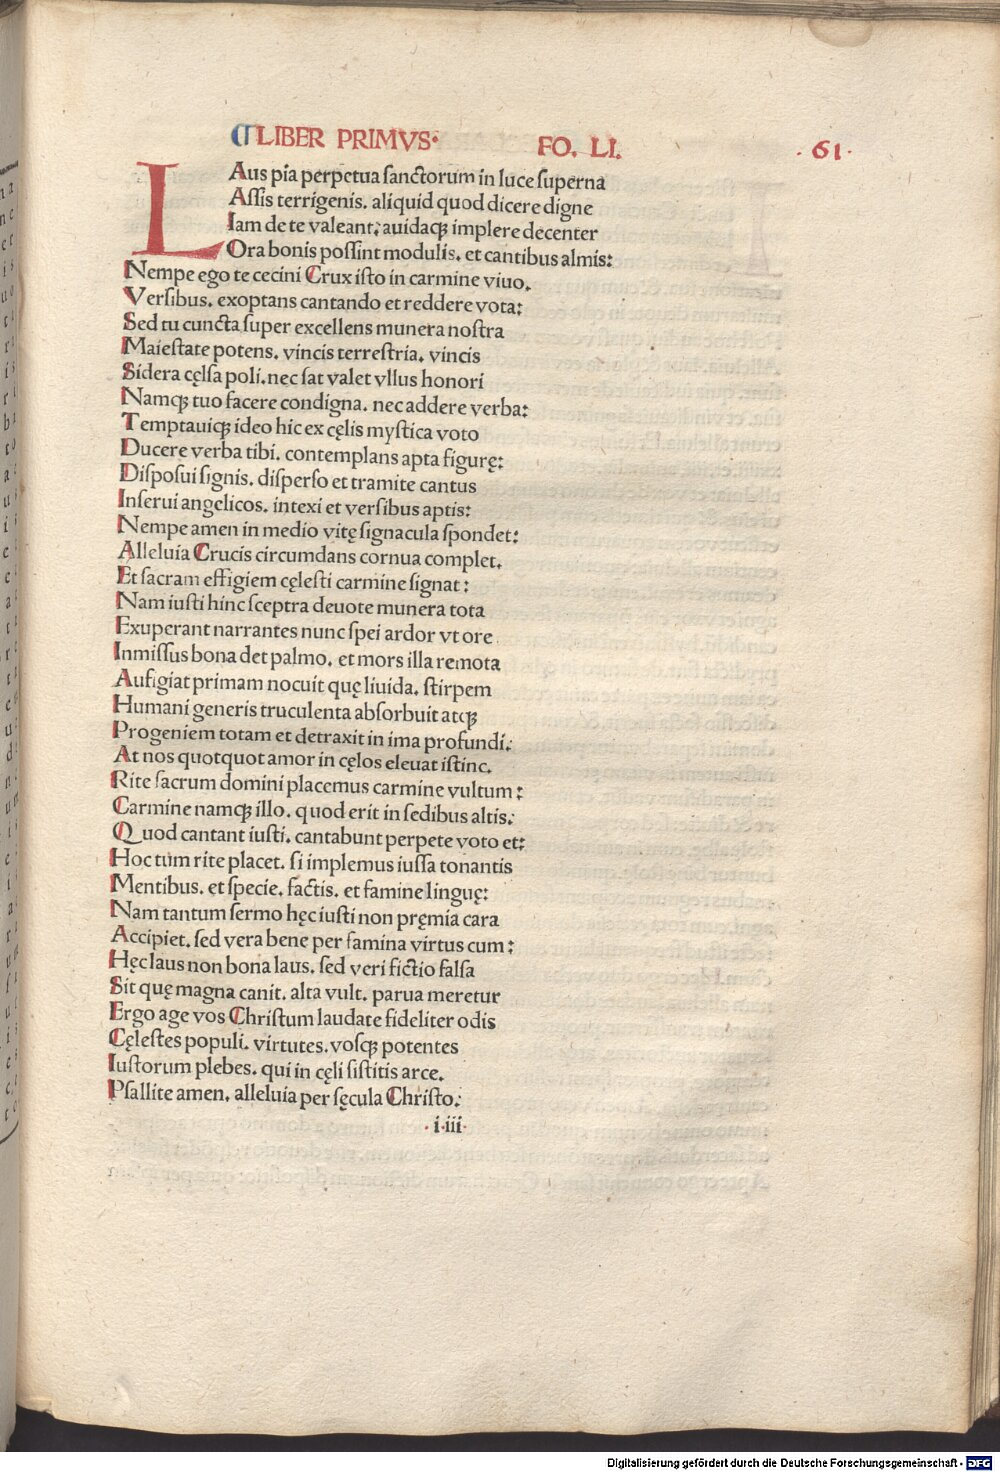 LIBER PRIMVS· FO. LI. ·61·
LAus pia perpetua sanctorum in luce superna
Assis terrigenis. aliquid quod dicere digne
Iam de te valeant: auidaqꝫ implere decenter
Ora bonis possint modulis. et cantibus almis:
Nempe ego te cecini Crux isto in carmine viuo.
Versibus. exoptans cantando et reddere vota:
Sed tu cuncta super excellens munera nostra
Maiestate potens. vincis terrestria. vincis
Sidera cęlsa poli. nec sat valet vllus honori
Namqꝫ tuo facere condigna. nec addere verba:
Temptauiqꝫ ideo hic ex cęlis mystica voto
Ducere verba tibi. contemplans apta figurę:
Disposui signis. disperso et tramite cantus
Inserui angelicos. intexi et versibus aptis:
Nempe amen in medio vitę signacula spondet:
Alleluia Crucis circumdans cornua complet.
Et sacram effigiem cęlesti carmine signat:
Nam iusti hinc sceptra deuote munera tota
Exuperant narrantes nunc spei ardor vt ore
Inmissus bona det palmo. et mors illa remota
Aufigiat primam nocuit quę liuida. stirpem
Humani generis truculenta absorbuit atqꝫ
Progeniem totam et detraxit in ima profundi:
At nos quotquot amor in cęlos eleuat istinc.
Rite sacrum domini placemus carmine vultum:
Carmine namqꝫ illo. quod erit in sedibus altis:
Quod cantant iusti. cantabunt perpete voto et:
Hoc tum rite placet. si implemus iussa tonantis
Mentibus. et specie. factis. et famine linguę:
Nam tantum sermo hęc iusti non pręmia cara
Accipiet. sed vera bene per famina virtus cum:
Hęc laus non bona laus. sed veri fictio falsa
Sit quę magna canit. alta vult. parua meretur
Ergo age vos Christum laudate fideliter odis
Cęlestes populi. virtutes. vosqꝫ potentes
Iustorum plebes. qui in cęli sistitis arce:
Psallite amen. alleluia per sęcula Christo:
·i·iii·
Digitalisierung gefördert durch die Deutsche Forschungsgemeinschaft - DFG